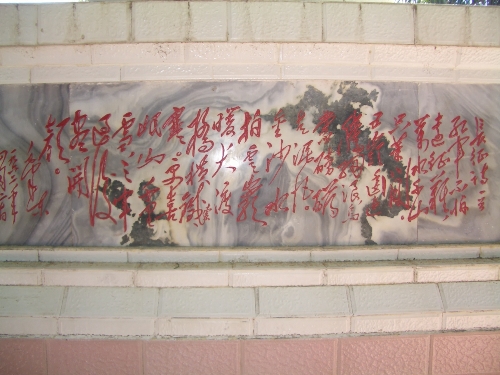 长征诗一首
红军不怕
远征难
万水千山
只等闲
五岭逶
迤腾细浪
乌蒙磅礴
走泥丸
金沙水
拍云崖
暖大渡
桥横铁
索寒更喜
岷山千里
雪三军
过后
尽开
颜
毛泽东